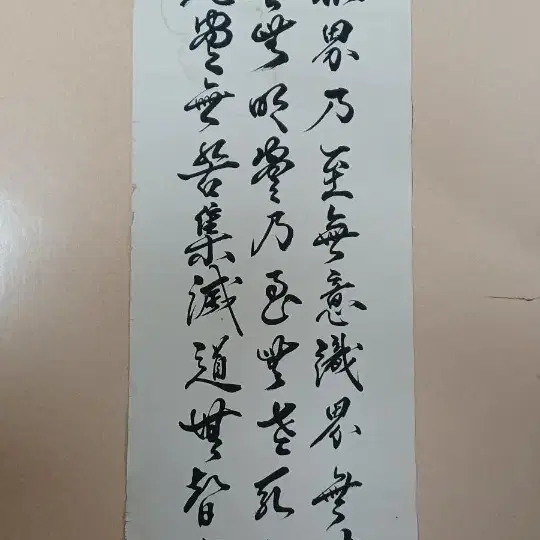 界乃至無意識界無
無明盡乃至無老死
盡無苦集滅道無智